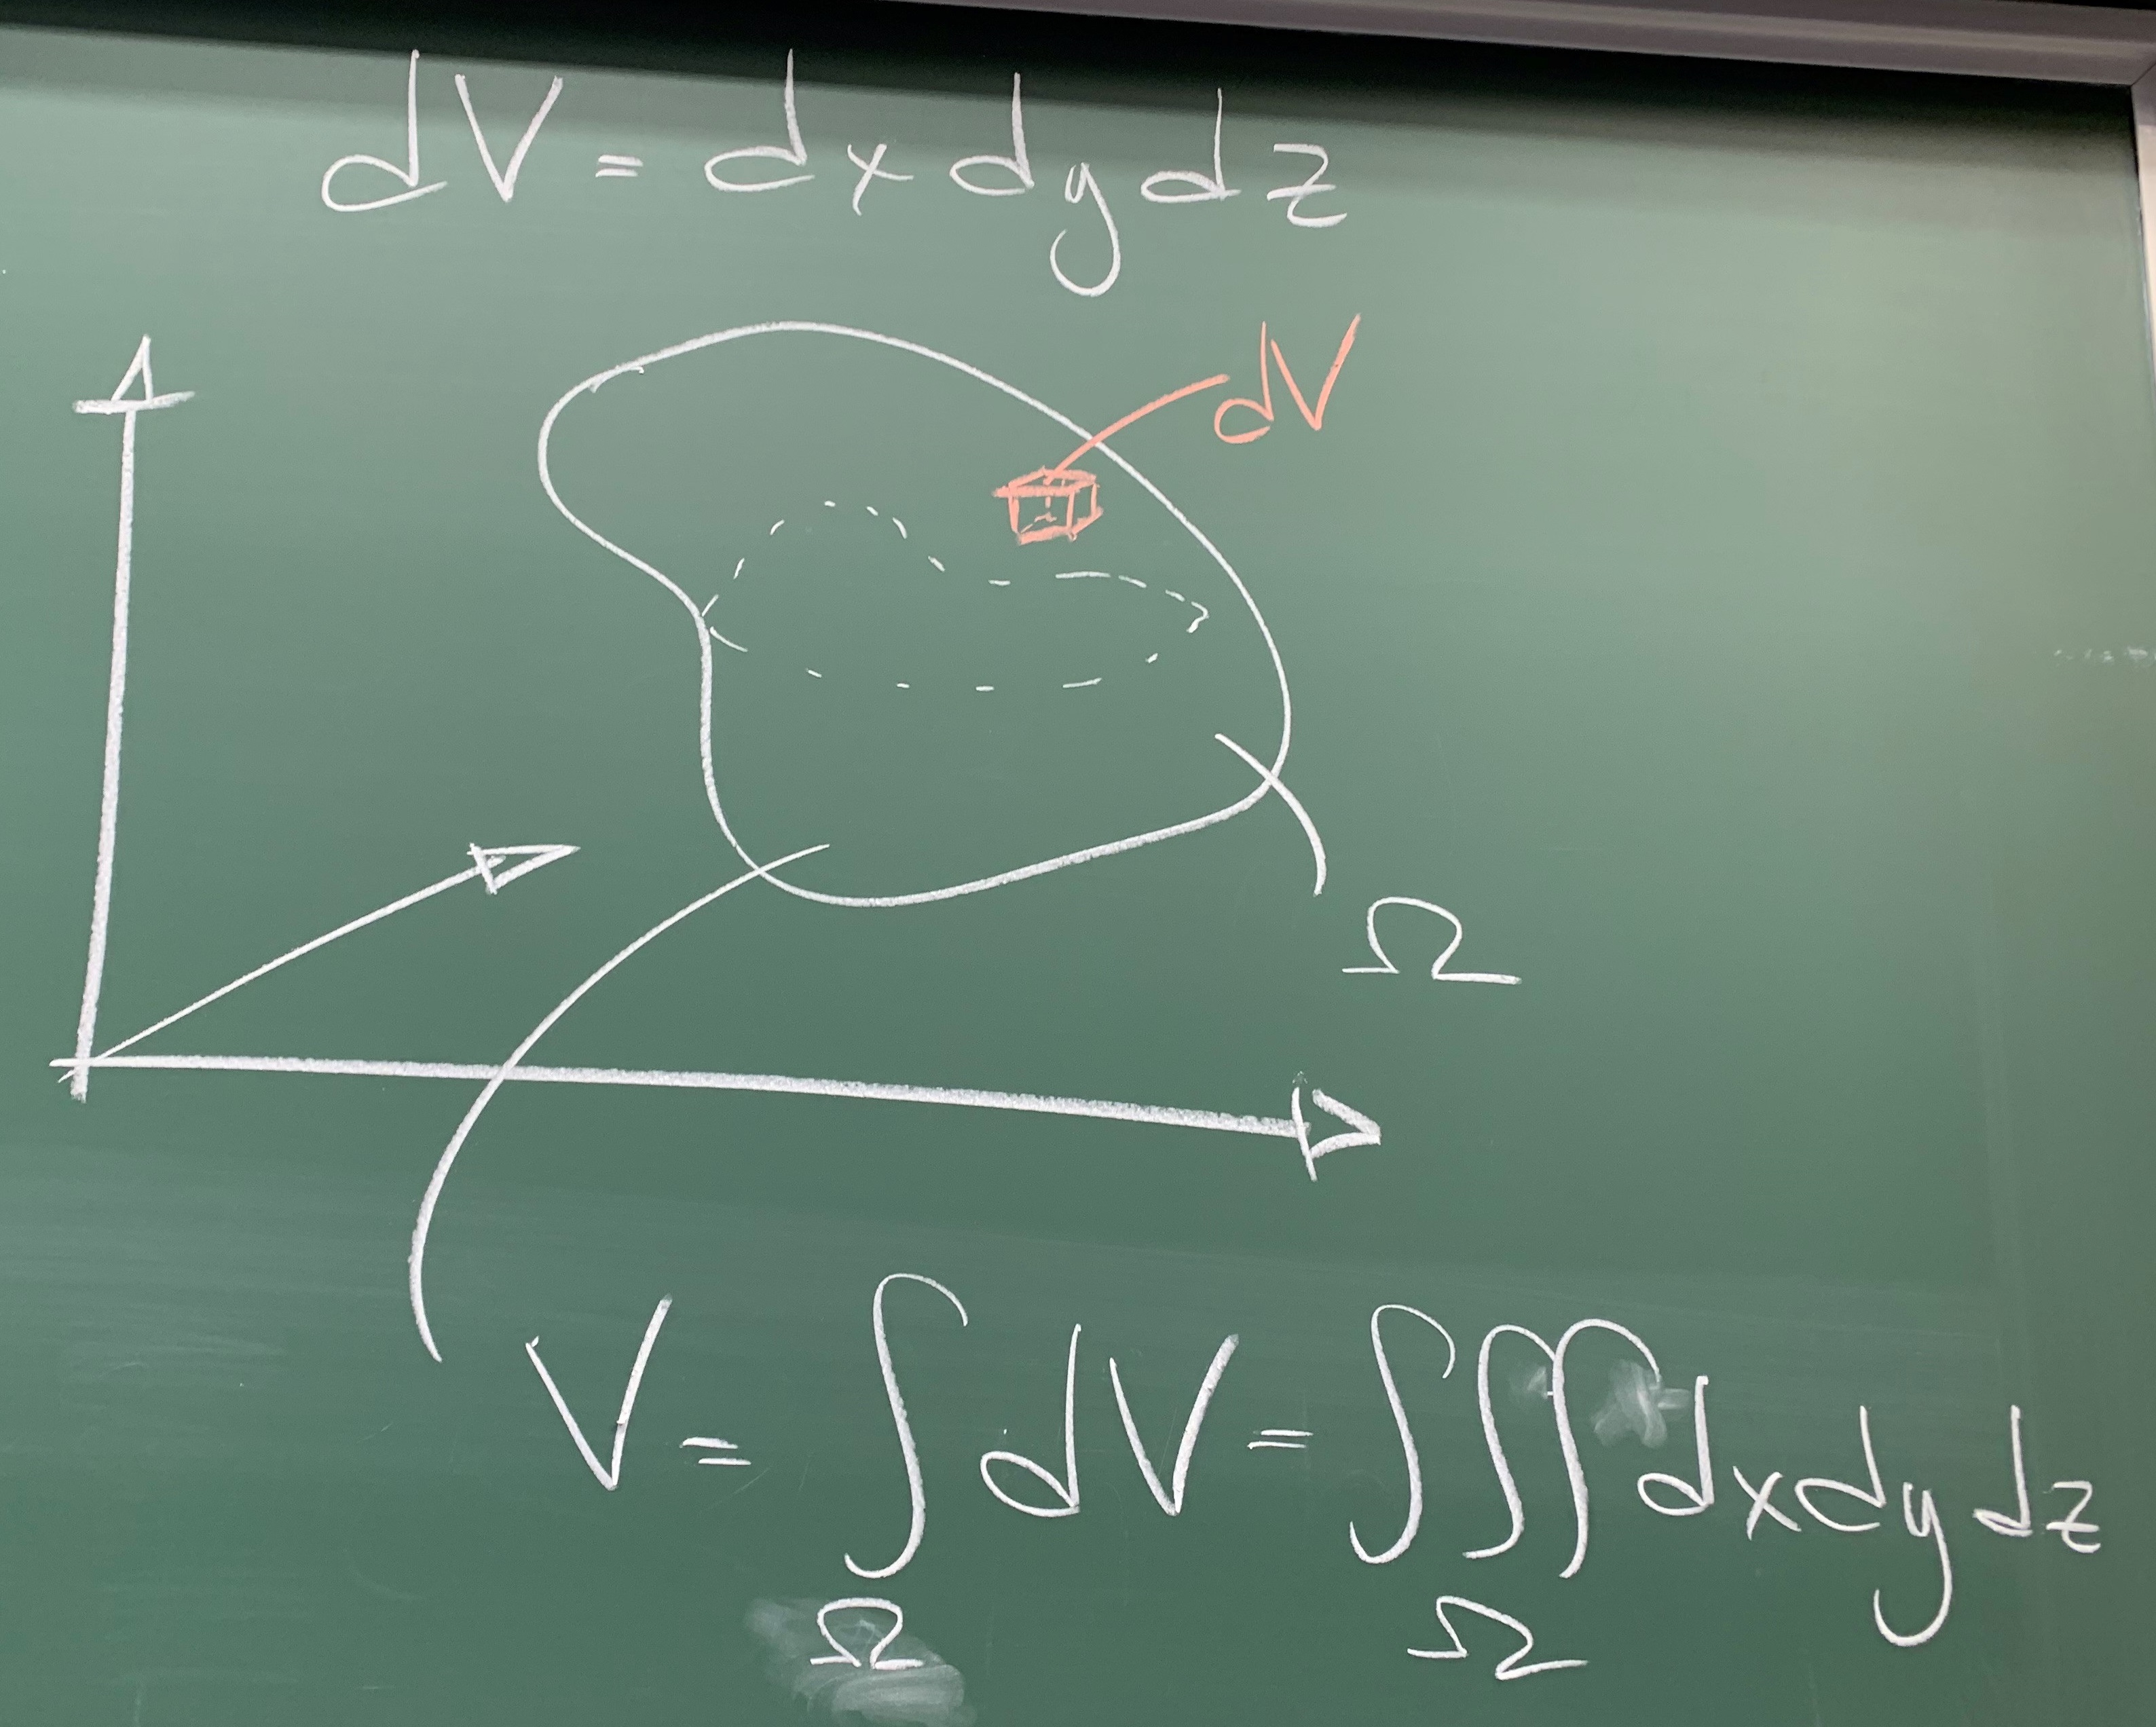 dV = dx dy dz
dV
Ω
V = ∫ dV = ∭ dx dy dz
Ω Ω